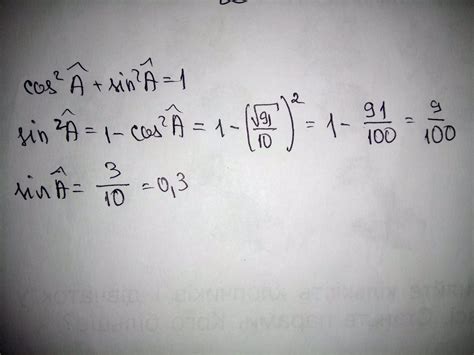 cos²Â + sin²Â = 1
sin²Â = 1 - cos²Â = 1 - (√91/10)² = 1 - 91/100 = 9/100
sin Â = 3/10 = 0,3